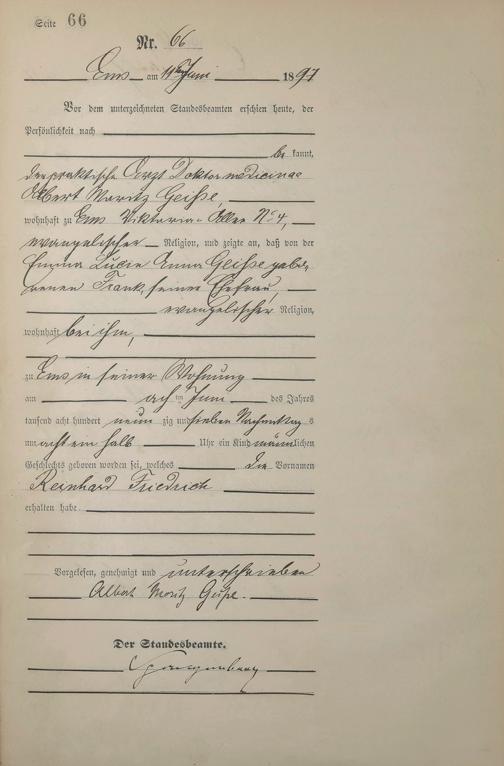 Seite 66
Nr. 66
Ems am 11ten Juni 1897
Vor dem unterzeichneten Standesbeamten erschien heute, der
Persönlichkeit nach
be kannt,
der praktische Arzt Doktor medicinae
Albert Moritz Geiße,
wohnhaft zu Ems Viktoria-Allee No 4,
evangelischer Religion, und zeigte an, daß von der
Emma Lucie Anna Geiße gebo-
renen Frank, seiner Ehefrau,
evangelischer Religion,
wohnhaft bei ihm,
zu Ems in seiner Wohnung
am acht ten Juni des Jahres
tausend acht hundert neun zig und sieben Nachmittag s
um acht ein halb Uhr ein Kind männlichen
Geschlechts geboren worden sei, welches die Vornamen
Reinhard Friedrich
erhalten habe
Vorgelesen, genehmigt und unterschrieben
Albert Moritz Geiße.
Der Standesbeamte.